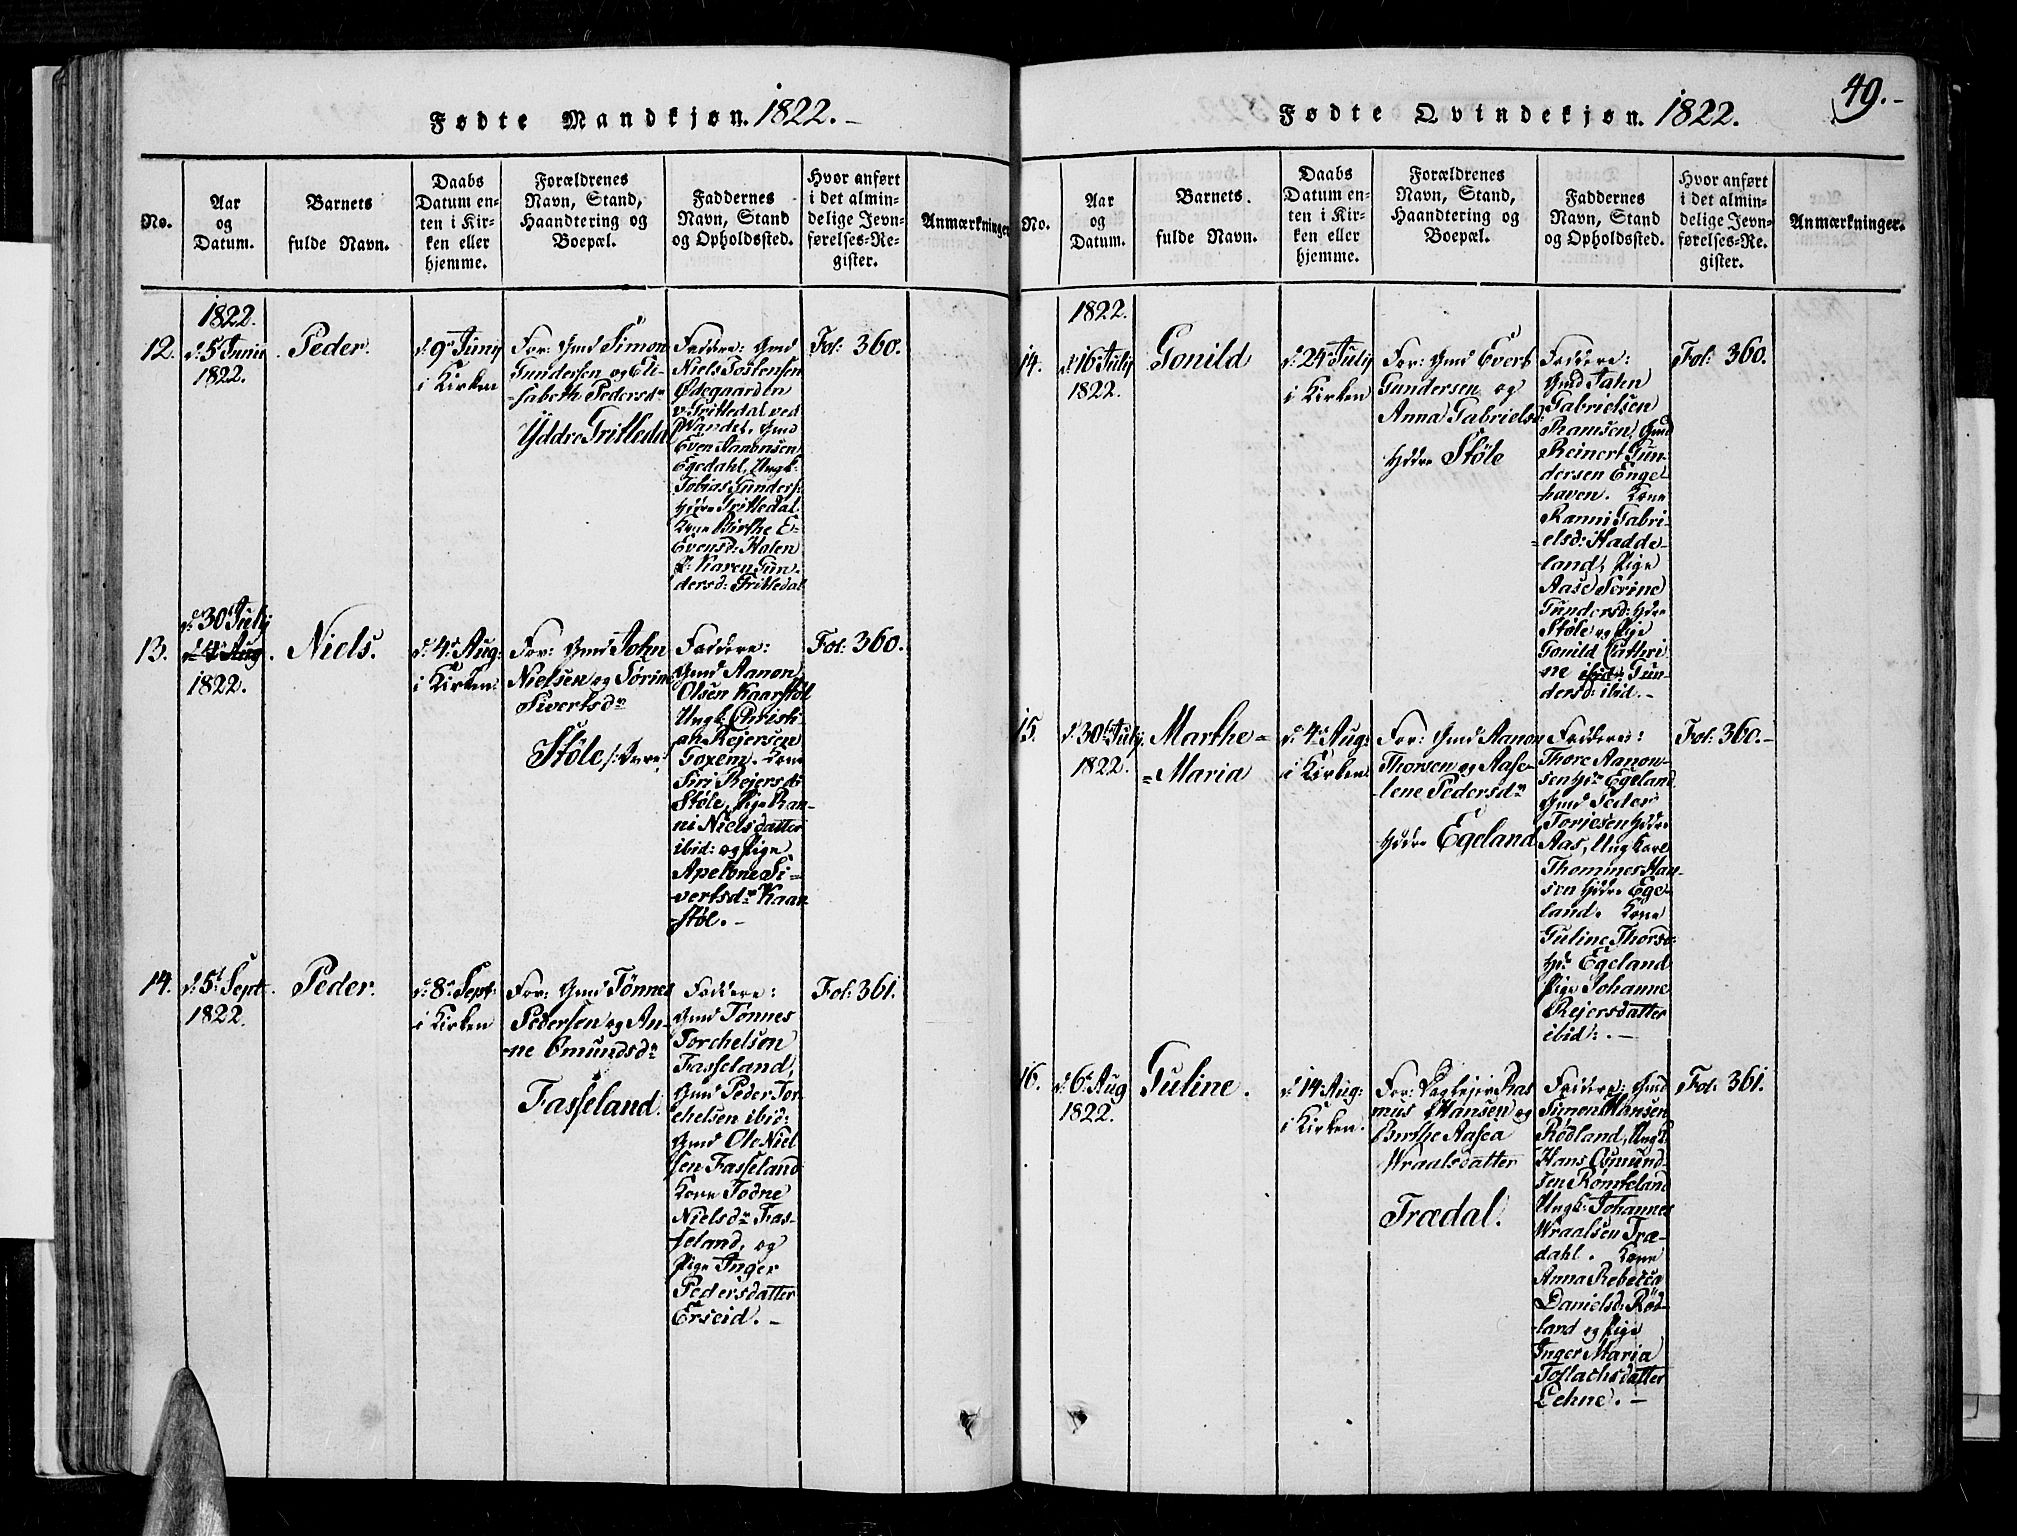 Fødte Mandkjøn. 1822.-
No.
Aar
og
Datum.
Barnets
fulde Navn.
Daabs
Datum en-
ten i Kir-
ken eller
hjemme.
Forældrenes
Navn, Stand,
Haandtering og
Boepæl.
Faddernes
Navn, Stand
og Opholdssted.
Hvor anført
i det almin-
delige Jevn-
førelses-Re-
gister.
Anmærkninger
12.
1822.
d: 5t Junii
1822.
Peder.
d: 9de Junij
i Kirken
For: Gmd Simon
Gundersen og Eli-
sabeth Pedersdr
Yddre Fritledal
Faddere: Gmd
Niels Tostensen
Ødegaarden
v: Fritledal ved
Mandal, Gmd
Even Aanonsen
Egedahl, Ungk:
Tobias Gunders:
Hdre Fritledal.
Kone Birthe E-
Evensd: Holen
P: Karen Gun-
dersd: Fritledal
Fol: 360.
13.
d: 30te Julij
1822.
Niels.
d: 4de Aug:
i Kirken
For: Gmd John
Nielsen og Sørine
Sivertsdr
Støle
Faddere:
Gmd Aanon
Olsen Kaarstøl
Ungk: Christi-
an Rejersen
Foxem. Kone
Siri Rejersdr
Støle, Pige Ran-
ni Nielsdatter
ibid: og Pige
Apelone Si-
vertsdr Kaar-
støl.-
Fol: 360.
14.
d: 5t Sept
1822.
Peder.
d: 8de Sept:
i Kirken
For: Gmd Tønnes
Pedersen og An-
-ne Omundsdr
Fasseland.
Faddere:
Gmd Tønnes
Torchelsen
Fasseland,
Gmd Peder Tor-
chelsen ibid:
Gmd Ole Niel-
sen Fasseland
Kone Todne
Nielsdr Fas-
seland, og
Pige Inger
Pedersdatter
Erseid.-
Fol: 361.
49.-
Fødte Qvindekjøn. 1822.
No.
Aar
og
Datum.
Barnets.
fulde Navn.
Daabs
Datum en-
ten i Kir-
ken eller
hjemme.
Forældrenes
Navn, Stand,
Haandtering og
Boepæl.
Faddernes
Navn, Stand
og Opholdssted.
Hvor anført
i det almin-
delige Jevn-
førelses-Re-
gister.
Anmærkninger.
14.
1822.
d: 16t Julij
1822.
Gonild
d: 24de Julij
i Kirken
For: Gmd Evert
Gundersen og
Anna Gabrielsd:
Hdre Støle
Faddere:
Gmd Jahn
Gabrielsen
Ramsen, Gmd
Reinert Gun-
dersen Engel-
haven. Kone
Ranni Gabri-
elsd: Hadde-
land, Pige
Aase Serine
Gundersd: Hdre
Støle og Pige
Gonild Cathri-
ne ibid: Gun-
dersd: ibid.-
Fol: 360.
15.
d: 30te Julij
1822.
Marthe=
=Maria
d: 4de Aug:
i Kirken
For: Gmd Aanon
Thorsen og Aase-
lene Pedersdr
Hdre Egeland
Faddere:
Thore Aanon-
sen Hdre Egeland
Gmd Peder
Torjesen Hddre
Aas, Ungkarl
Thommes Han-
sen Hddre Ege-
land. Kone
Guline Thorsd:
Hdr Egeland
Pige Johanne
Rejersdatter
ibid:.-
Fol: 360.-
16.
d: 6t Aug
1822.
Guline.
d: 14de Aug:
i Kirken.
For: Ras-
mus Hansen og
Birthe Aasea
Wraalsdatter
Trædal.
Faddere: Gmd
Simon Hansen
Rødland, Ungk:
Hans Osmund-
sen Rømteland
Ungk: Johannes
Wraalsen Træ-
dahl. Kone
Anna Rebecca
Danielsd: Rød-
land og Pige
Inger Maria
Tollachsdatter
Lehne.-
Fol: 361.